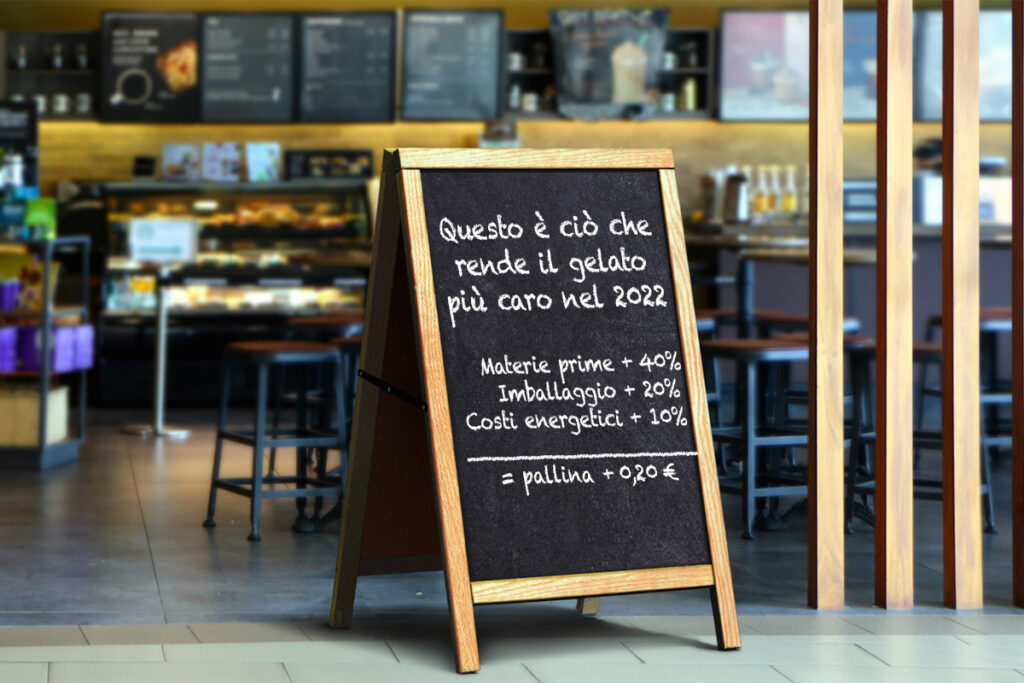 Questo è ciò che
rende il gelato
più caro nel 2022
Materie prime + 40%
Imballaggio + 20%
Costi energetici + 10%
= pallina + 0,20 €